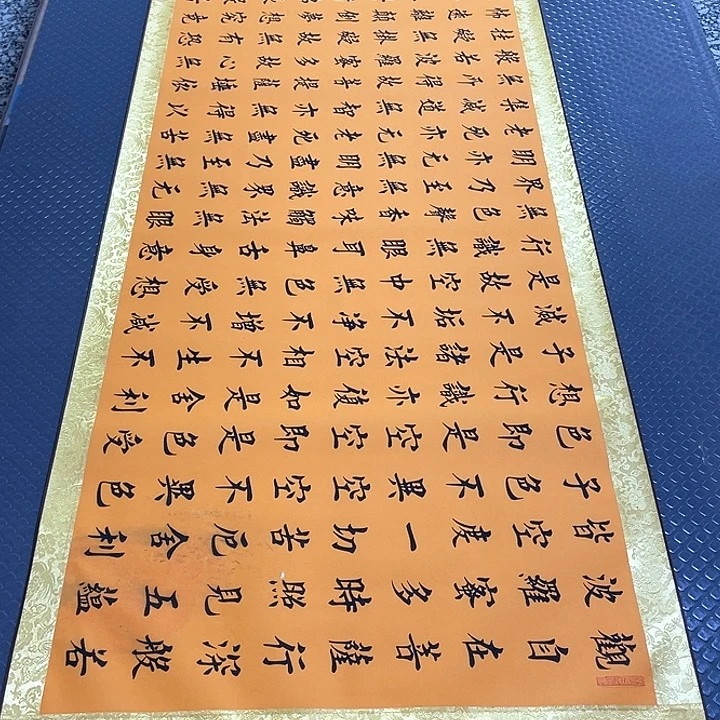 觀自在菩薩行深般若
波羅蜜多時照見五蘊
皆空度一切苦厄舍利
子色不異空空不異色
色即是空空即是色受
想行識亦復如是舍利
子是諸法空相不生不
滅不垢不净不增不減
是故空中無色無受想
行識無眼耳鼻舌身意
無色聲香味觸法無眼
界乃至無意識界無无
明亦元無明盡乃至無
老死亦无老死盡無苦
集滅道無智亦無得以
無所得故菩提薩埵依
般若波羅蜜多故心無
挂礙無掛礙故無有恐
怖遠離顛倒夢想究竟